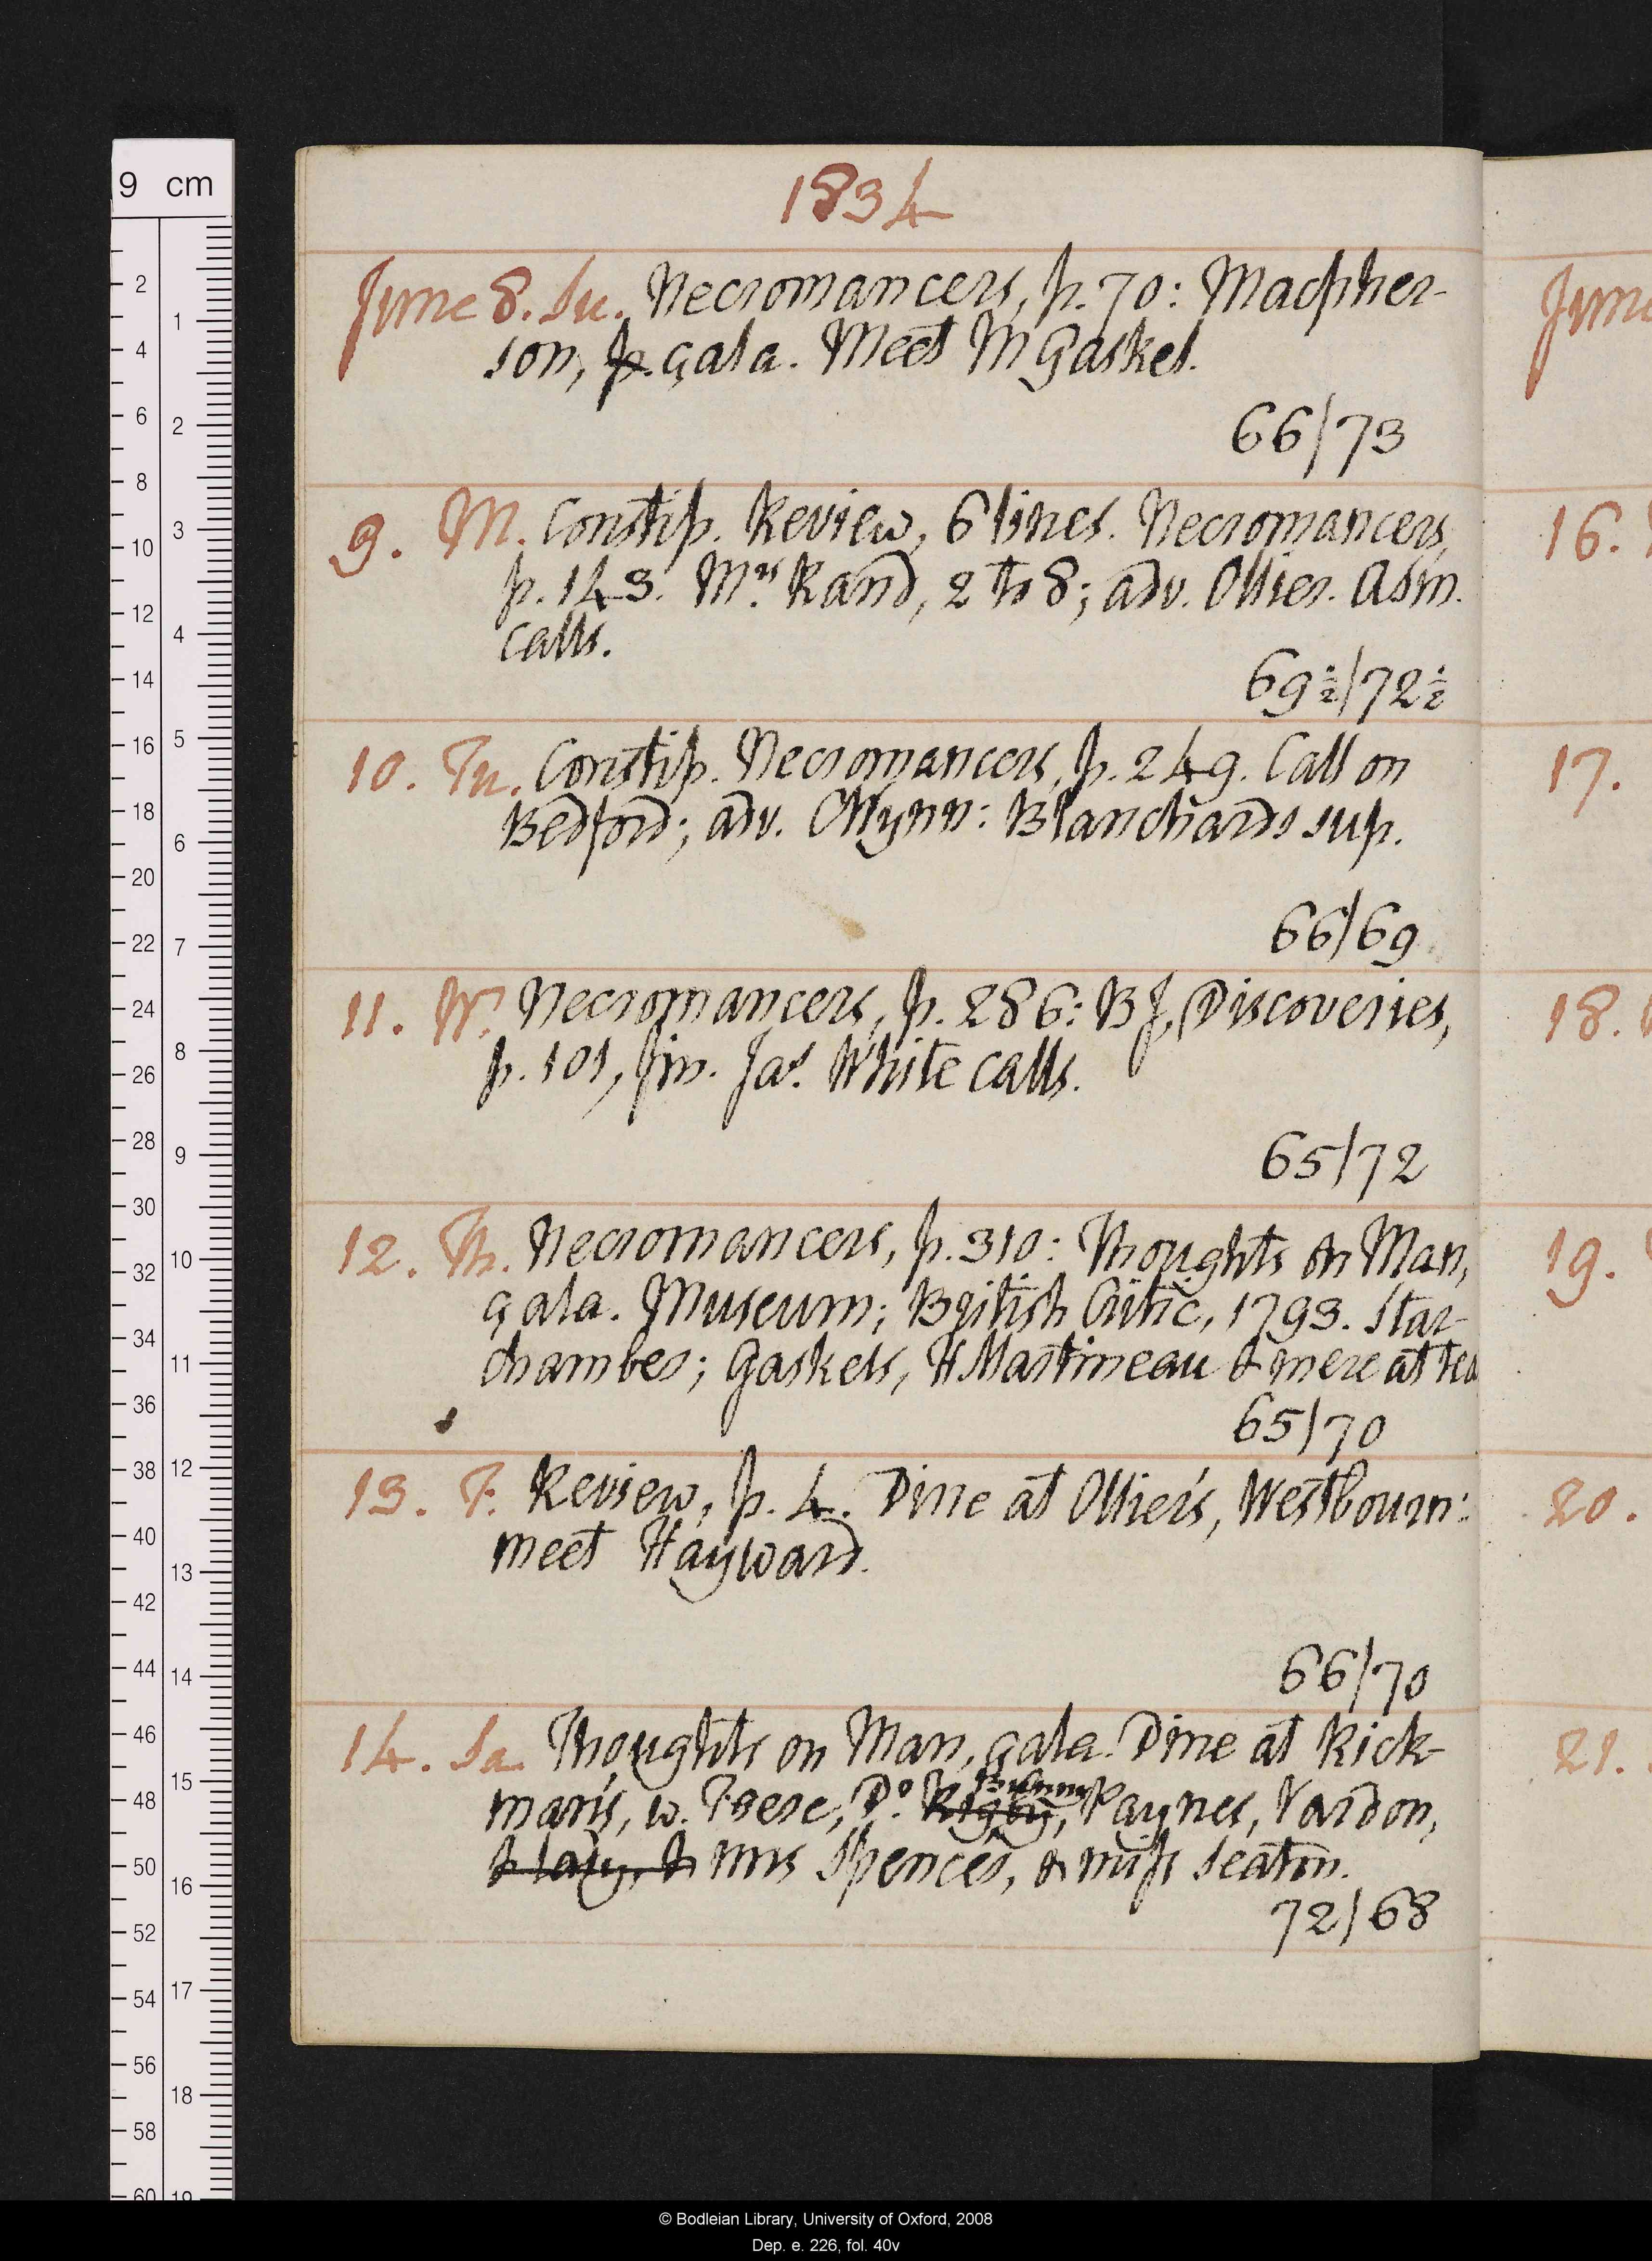 1834
June 8. Su. Necromancers, p. 70: Macpher-
son, çala. Meet M Gaskel.
66/73
9. M. Constip. Review, 6 lines. Necromancers,
p. 143. Mrs Rand, 2 to 8; adv. Ollier. Adm.
calls.
69½/72½
10. Tu. Constip. Necromancers, p. 249. Call on
Bedford; adv. OWynn: Blanchards sup.
66/69
11. W. Necromancers, p. 286: BJ, Discoveries,
p. 101, fin. Jas. White calls.
65/72
12. Th. Necromancers, p. 310: Thoughts on Man,
çala. Museum; British Critic, 1793. Star-
chamber; Gaskels, H Martineau & mere at tea
65/70
13. F. Review, p. 4. Dine at Ollier's, Westbourn:
meet Hayward.
66/70
14. Sa. Thoughts on Man, çala. Dine at Rick-
man's, w. Frere, Dr. Rigby, Paynes, Yardon,
& lady, & mrs Spences, & miss Seaton.
72/68
June
16.
17.
18.
19.
20.
21.
9 cm
2
4
6
8
10
12
14
16
18
20
22
24
26
28
30
32
34
36
38
40
42
44
46
48
50
52
54
56
58
60
1
2
3
4
5
6
7
8
9
10
11
12
13
14
15
16
17
18
19
© Bodleian Library, University of Oxford, 2008
Dep. e. 226, fol. 40v